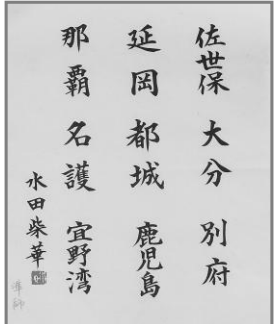 佐世保 大分 別府
延岡 都城 鹿児島
那覇 名護 宜野湾
水田柴華